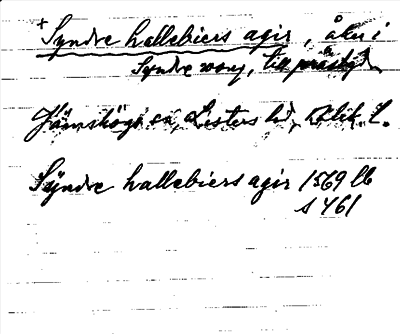 + Syndre hallebiers agir, åker i
Syndre wong, till prästg.
Jämshögs sn, Listers hd, Blek. l.
Syndre hallebiers agir 1569 lb
s 461